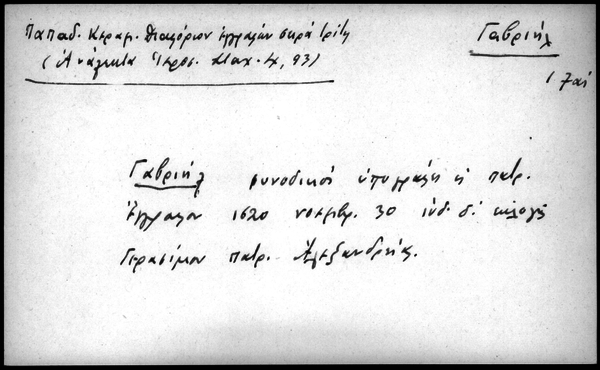 Παπαδ. Κεραμ. Διαφόρων ἐγγράφων σειρὰ τρίτη
(Ἀνάλεκτα Ἱεροσ. Σταχ. 4, 93)
Γαβριήλ
17αι
Γαβριήλ συνοδικοῦ ὑπογραφὴ πατρ.
ἔγγραφον 1620 νοεμβρ. 30 ἰνδ. δ΄ ἐκλογῆς
Γερασίμου πατρ. Ἀλεξανδρείας.